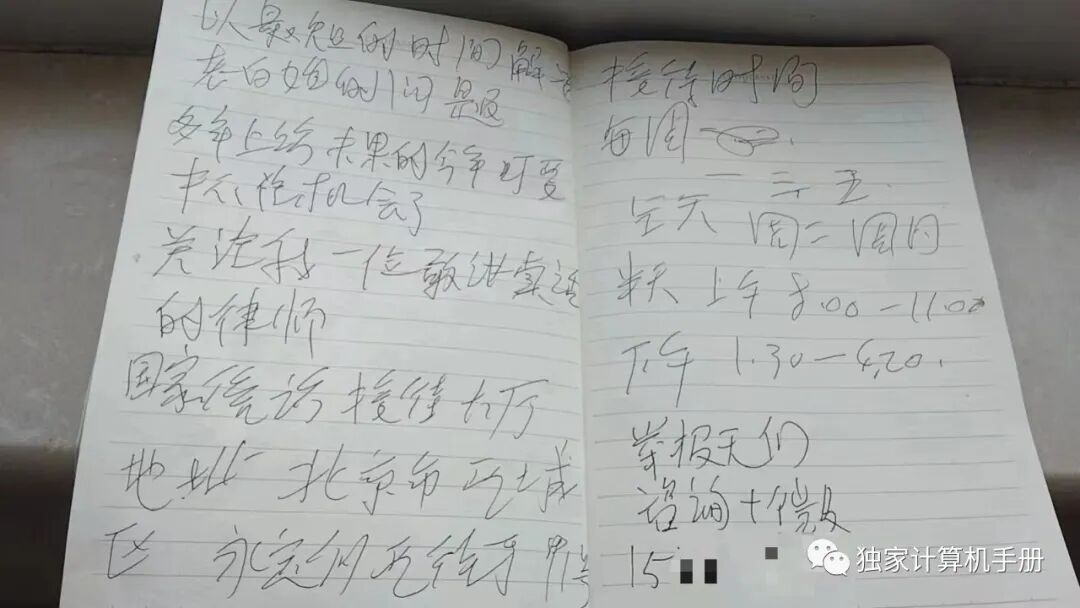 以最短的时间解决
老百姓的问题
多年上访未果的今年可要
抓住机会了
关注我一位敢讲实话
的律师
国家信访接待大厅
地址 北京市西城
区 永定门西街甲1号
接待时间
每周一
一 三 五
全天 周二 周四
半天 上午 8:00-11:00
下午 1.30-4.20.
举报天们
咨询+微
15
独家计算机手册